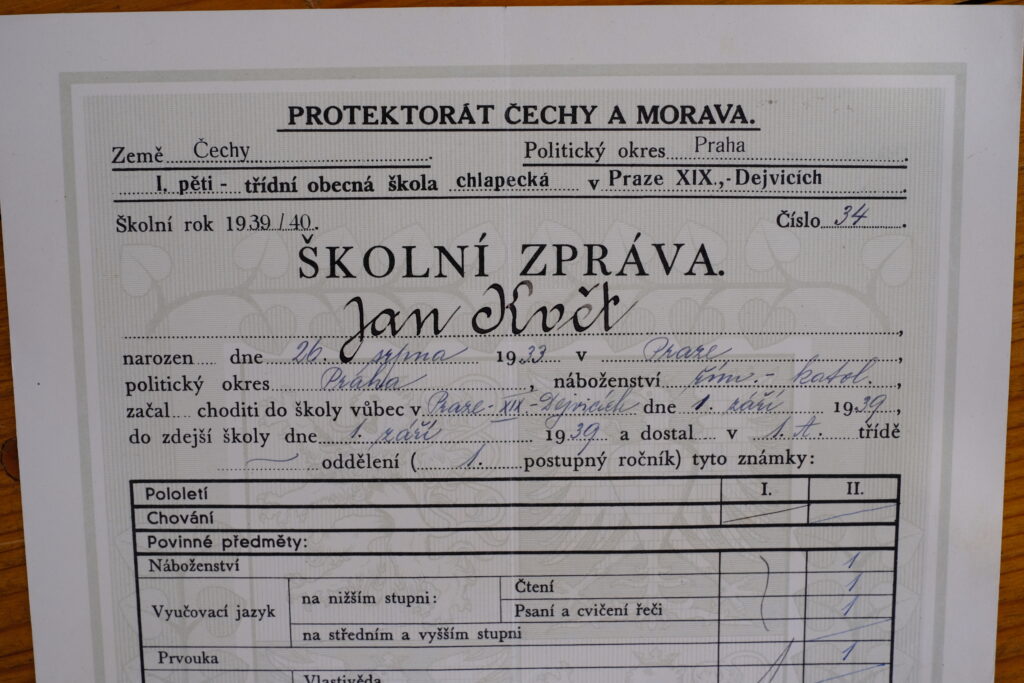 PROTEKTORÁT ČECHY A MORAVA.
Země Čechy. Politický okres Praha.
I. pěti - třídní obecná škola chlapecká v Praze XIX.,-Dejvicích.
Školní rok 1939/40. Číslo 34.
ŠKOLNÍ ZPRÁVA.
Jan Květ,
narozen dne 26. srpna 1933 v Praze,
politický okres Praha, náboženství řím.-katol.,
začal choditi do školy vůbec v Praze-XIX-Dejvicích dne 1. září 1939,
do zdejší školy dne 1. září 1939 a dostal v 1.A. třídě
oddělení (1. postupný ročník) tyto známky:
Pololetí I. II.
Chování
Povinné předměty:
Náboženství 1
Vyučovací jazyk na nižším stupni: Čtení 1
Psaní a cvičení řeči 1
na středním a vyšším stupni
Prvouka 1
Vlastivěda